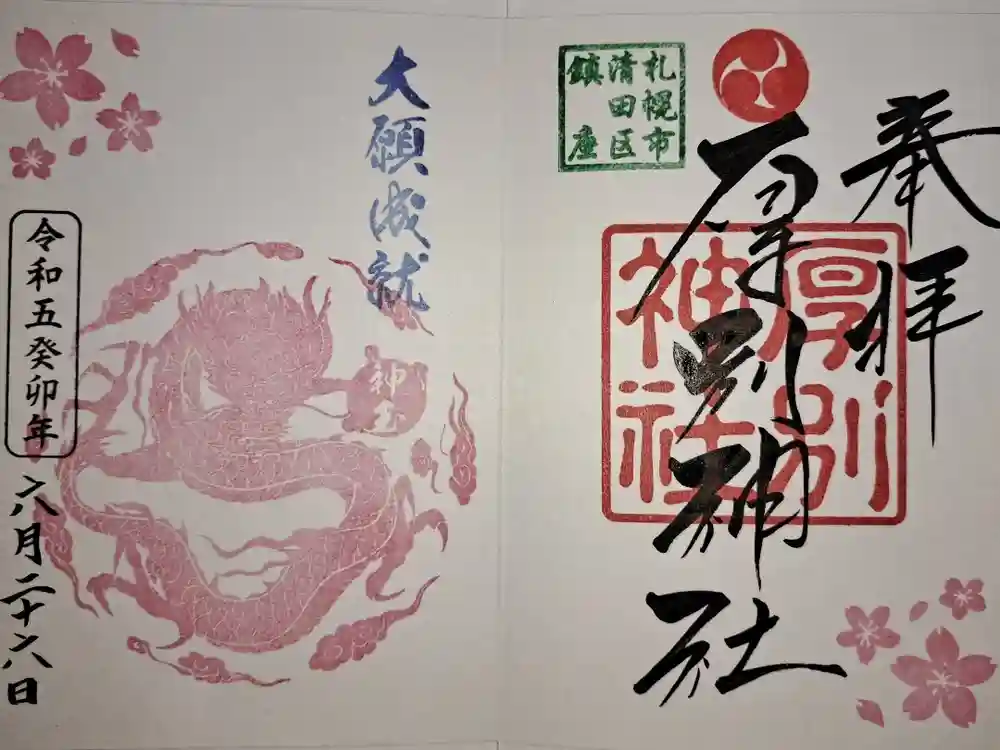 奉拝
厚別神社
札幌市
清田区
鎮座
厚別
神社
大願成就
令和五癸卯年
六月二十六日